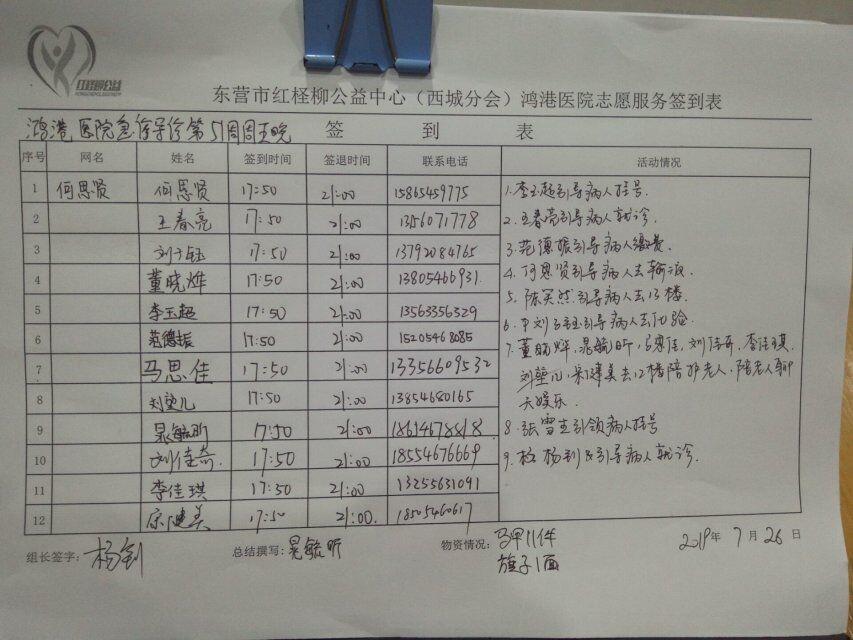 红柽柳公益
东营市红柽柳公益中心（西城分会）鸿港医院志愿服务签到表
鸿港医院急诊导诊第51周周五晚 签到表
序号 网名 姓名 签到时间 签退时间 联系电话 活动情况
1 何思贤 何思贤 17:50 21:00 15865459775
2 王春亮 17:50 21:00 1356071778
3 刘子钰 17:50 21:00 13792084765
4 董晓烨 17:50 21:00 13805466931
5 李玉超 17:50 21:00 13563356329
6 范德振 17:50 21:00 15205468085
7 马思佳 17:50 21:00 13356609532
8 刘堃儿 17:50 21:00 13854680165
9 晁毓昕 17:50 21:00 18614678818
10 刘佳奇 17:50 21:00 18554676669
11 李佳琪 17:50 21:00 13255631091
12 宗健美 17:50 21:00 18505460617
1.李玉超引导病人挂号.
2.王春亮引导病人就诊.
3.范德振引导病人缴费.
4.何思贤引导病人去输液
5.陈奕然引导病人去13楼
6.刘子钰引导病人去化验
7.董晓烨,晁毓昕,马思佳,刘佳奇,李佳琪.
刘堃儿,宗健美去12楼陪护老人,陪老人聊
天娱乐.
8.张雪 引领病人挂号
9.杨钊 引导病人就诊.
组长签字：杨钊 总结撰写：晁毓昕 物资情况：马甲11件
旗子1面
2019年7月26日